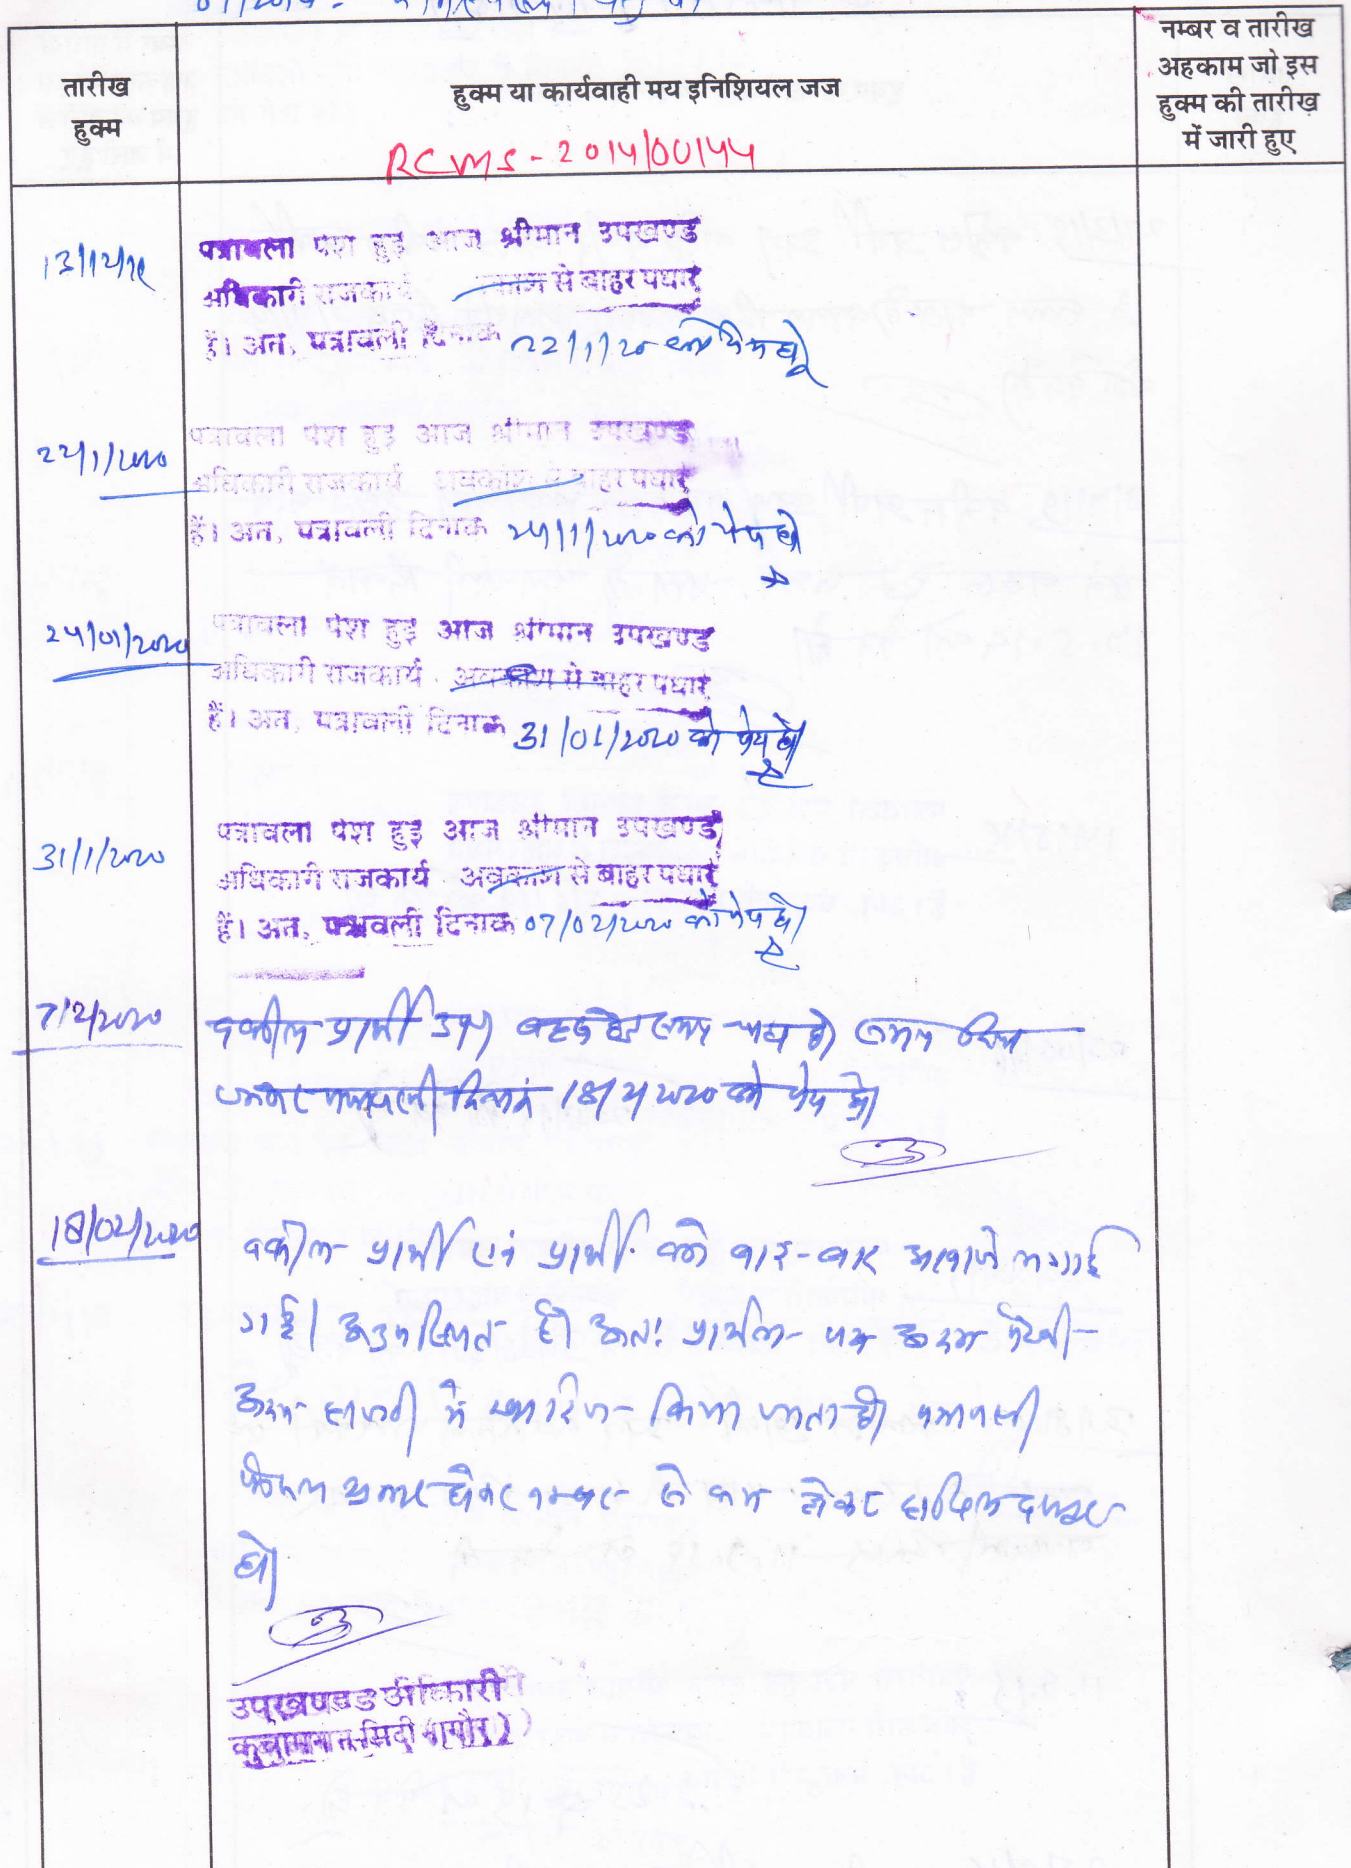 तारीख
हुक्म
हुक्म या कार्यवाही मय इनिशियल जज
नम्बर व तारीख
अहकाम जो इस
हुक्म की तारीख
में जारी हुए
RCMS-2014/00144
13/12/19
पत्रावली पेश हुई आज श्रीमान उपखण्ड
अधिकारी राजकार्य से बाहर पधारे
हैं। अत, पत्रावली दिनांक 22/1/20 को पेश हो
22/1/2020
पत्रावली पेश हुई आज श्रीमान उपखण्ड
अधिकारी राजकार्य अवकाश से बाहर पधारे
हैं। अत, पत्रावली दिनांक 24/1/2020 को पेश हो
24/01/2020
पत्रावली पेश हुई आज श्रीमान उपखण्ड
अधिकारी राजकार्य अवकाश से बाहर पधारे
हैं। अत, पत्रावली दिनांक 31/01/2020 को पेश हो
31/1/2020
पत्रावली पेश हुई आज श्रीमान उपखण्ड
अधिकारी राजकार्य अवकाश से बाहर पधारे
हैं। अत, पत्रावली दिनांक 07/02/2020 को पेश हो
7/2/2020
वकील प्रार्थी उप। बहस हेतु समय चाहा है। समय दिया
जाकर पत्रावली दिनांक 18/2/2020 को पेश हो।
18/02/2020
वकील प्रार्थी एवं प्रार्थी को बार-बार आवाजे लगाई
गई। अनुपस्थित है। अतः प्रार्थना पत्र अदम पैरवी
अदम हाजरी में खारिज किया जाता है। पत्रावली
फैसल शुमार होकर नम्बर से कम होकर दाखिल दफ्तर
हो।
उपखण्ड अधिकारी
कुचामन सिटी (नागौर)